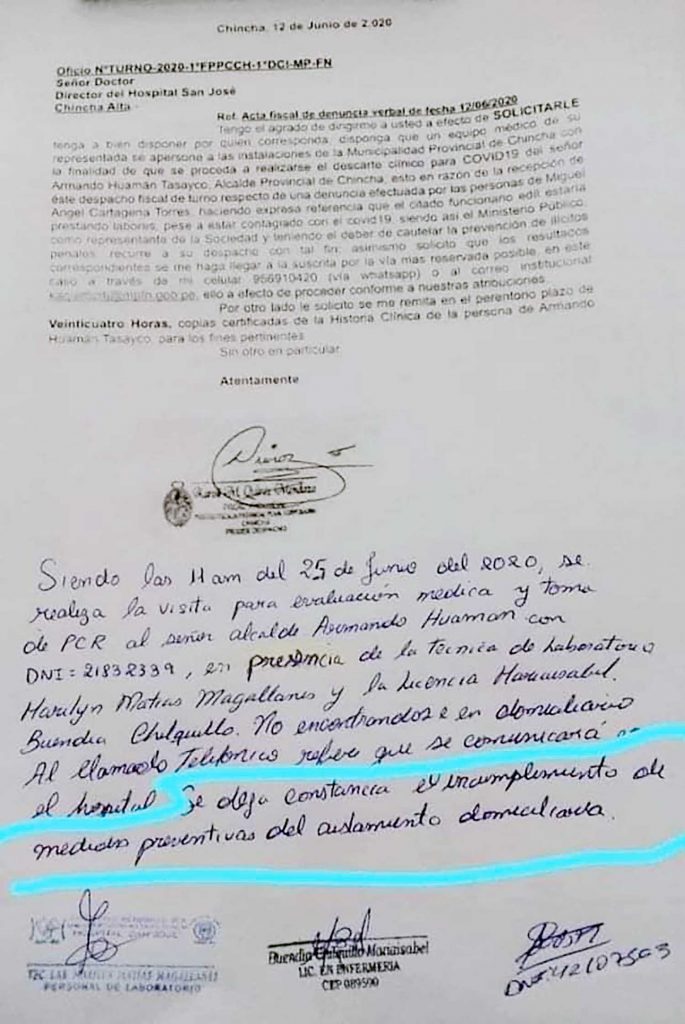 Chincha, 12 de Junio de 2.020
Oficio N°TURNO-2020-1°FPPCCH-1°DCI-MP-FN
Señor Doctor
Director del Hospital San José
Chincha Alta.-
Ref. Acta fiscal de denuncia verbal de fecha 12/06/2020
Tengo el agrado de dirigirme a usted a efecto de SOLICITARLE
tenga a bien disponer por quien corresponda, disponga que un equipo médico de su
representada se apersone a las instalaciones de la Municipalidad Provincial de Chincha con
la finalidad de que se proceda a realizarse el descarte clínico para COVID19 del señor
Armando Huamán Tasayco, Alcalde Provincial de Chincha, esto en razón de la recepción de
éste despacho fiscal de turno respecto de una denuncia efectuada por las personas de Miguel
Angel Cartagena Torres, haciendo expresa referencia que el citado funcionario edil estaría
prestando labores, pese a estar contagiado con el covid19, siendo así el Ministerio Público,
como representante de la Sociedad y teniendo el deber de cautelar la prevención de ilícitos
penales, recurre a su despacho con tal fin; asimismo solicito que los resultados
correspondientes se me haga llegar a la suscrita por la vía mas reservada posible, en este
caso a través de mi celular 956910420 (vía whatsapp) o al correo institucional
ello a efecto de proceder conforme a nuestras atribuciones.
Por otro lado le solicito se me remita en el perentorio plazo de
Veinticuatro Horas, copias certificadas de la Historia Clínica de la persona de Armando
Huamán Tasayco, para los fines pertinentes.
Sin otro en particular
Atentamente
CHINCHA
Siendo las 11 am del 25 de Junio del 2020, se
realiza la visita para evaluación medica y toma
de PCR al señor alcalde Armando Huaman con
DNI = 21832339, en presencia de la tecnica de Laboratorio
Marilyn Matias Magallanes y la Licencia Marcuisabel
Buendia Chilquillo. No encontrandose en domiciliario
Al llamado Telefonico refiere que se comunicará
el hospital Se deja constancia el incumplimiento de
medidas preventivas del aislamiento domiciliaria.
TEC. LAB. MARILYN MATIAS MAGALLANES
PERSONAL DE LABORATORIO
Buendia Chilquillo
LIC. EN ENFERMERIA
CEP 089590
DNI: 42107563